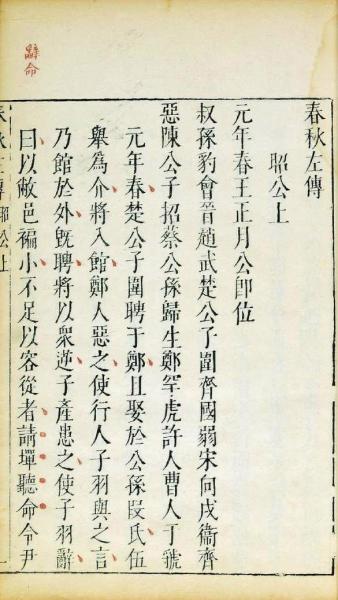 辭命
春秋左傳
昭公上
元年春王正月公卽位
叔孫豹會晉趙武楚公子圍齊國弱宋向戌衞齊
惡陳公子招蔡公孫歸生鄭罕虎許人曹人于虢
元年春楚公子圍聘于鄭且娶於公孫段氏伍
舉爲介將入館鄭人惡之使行人子羽與之言
乃館於外旣聘將以衆逆子產患之使子羽辭
曰以敝邑褊小不足以容從者請墠聽命令尹
春秋左傳 昭公上